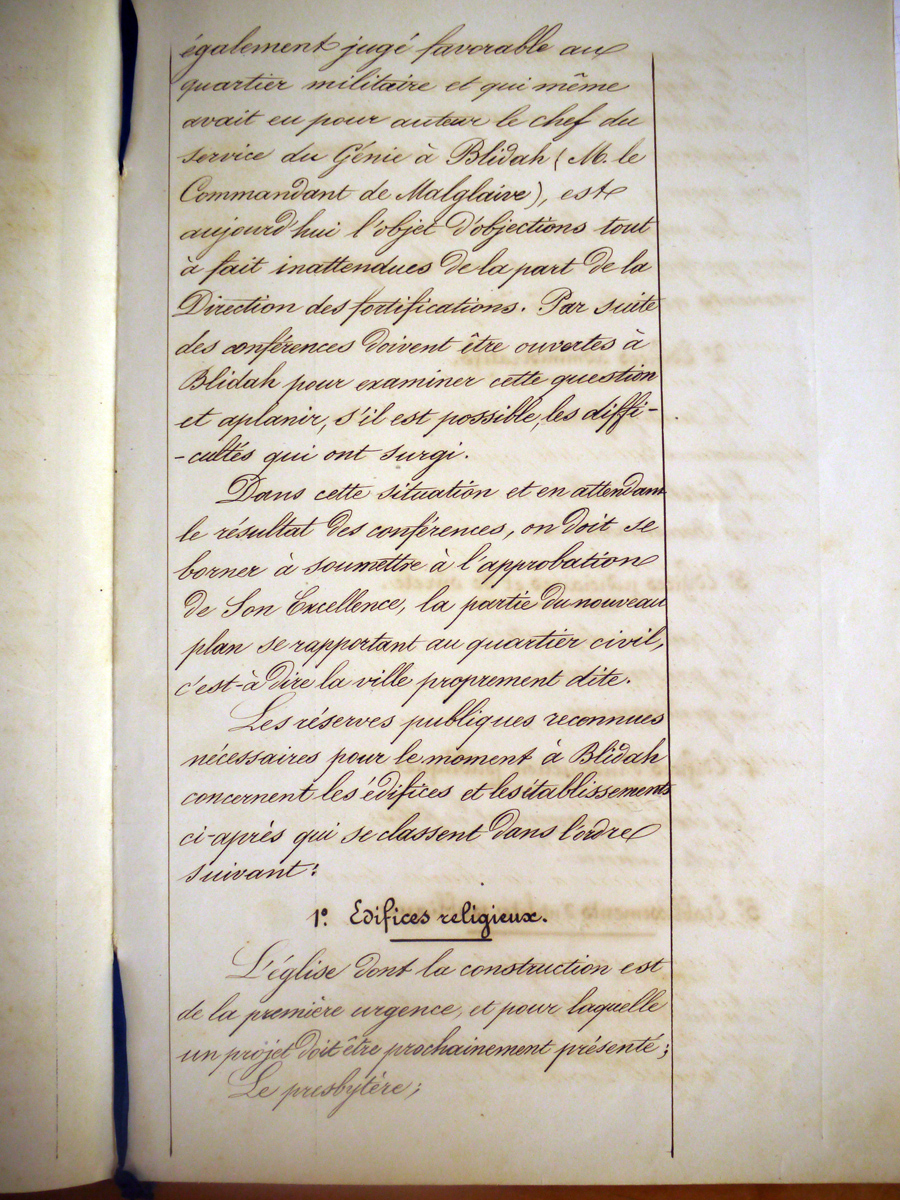 également jugé favorable au
quartier militaire et qui même
avait eu pour auteur le chef du
service du Génie à Blidah (M. le
Commandant de Malglaive), est
aujourd'hui l'objet d'objections tout
à fait inattendues de la part de la
Direction des fortifications. Par suite
des conférences doivent être ouvertes à
Blidah pour examiner cette question
et aplanir, s'il est possible, les diffi-
-cultés qui ont surgi.
Dans cette situation et en attendant
le résultat des conférences, on doit se
borner à soumettre à l'approbation
de Son Excellence, la partie du nouveau
plan se rapportant au quartier civil,
c'est-à dire la ville proprement dite.
Les réserves publiques reconnues
nécessaires pour le moment à Blidah
concernent les édifices et les établissements
ci-après qui se classent dans l'ordre
suivant:
1º. Edifices religieux.
L'église dont la construction est
de la première urgence, et pour laquelle
un projet doit être prochainement présenté;
Le presbytère;